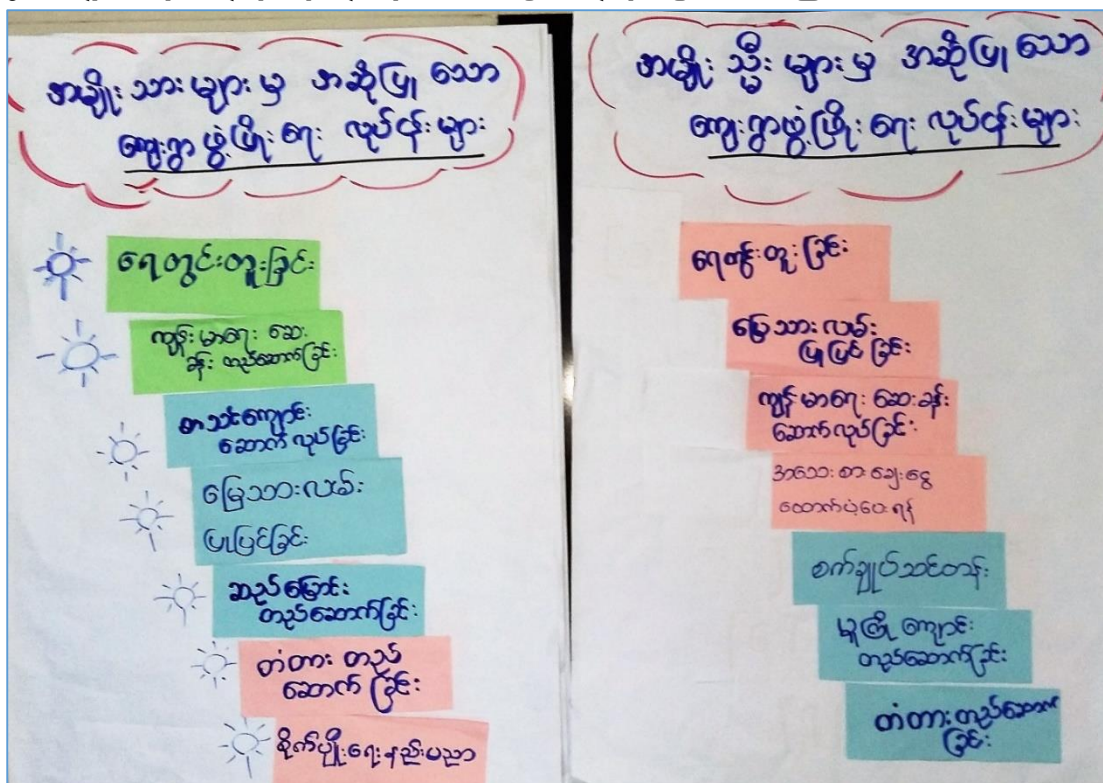 အမျိုးသားများမှ အဆိုပြုသော
ကျေးရွာဖွံ့ဖြိုးရေး လုပ်ငန်းများ
ရေတွင်းတူးခြင်း
ကျန်းမာရေး ဆေး
ခန်း တည်ဆောက်ခြင်း
စာသင်ကျောင်း
ဆောက်လုပ်ခြင်း
မြေသားလမ်း
ပြုပြင်ခြင်း
ဆည်မြောင်း
တည်ဆောက်ခြင်း
တံတား တည်
ဆောက်ခြင်း
စိုက်ပျိုးရေးနည်းပညာ
အမျိုးသ္မီးများမှ အဆိုပြုသော
ကျေးရွာဖွံ့ဖြိုးရေး လုပ်ငန်းများ
ရေတွင်းတူးခြင်း
မြေသားလမ်း
ပြုပြင်ခြင်း
ကျန်းမာရေး ဆေးခန်း
ဆောက်လုပ်ခြင်း
အသေးစားချေးငွေ
ထောက်ပံ့ပေးရန်
စက်ချုပ်သင်တန်း
မူကြိုကျောင်း
တည်ဆောက်ခြင်း
တံတားတည်ဆောက်
ခြင်း